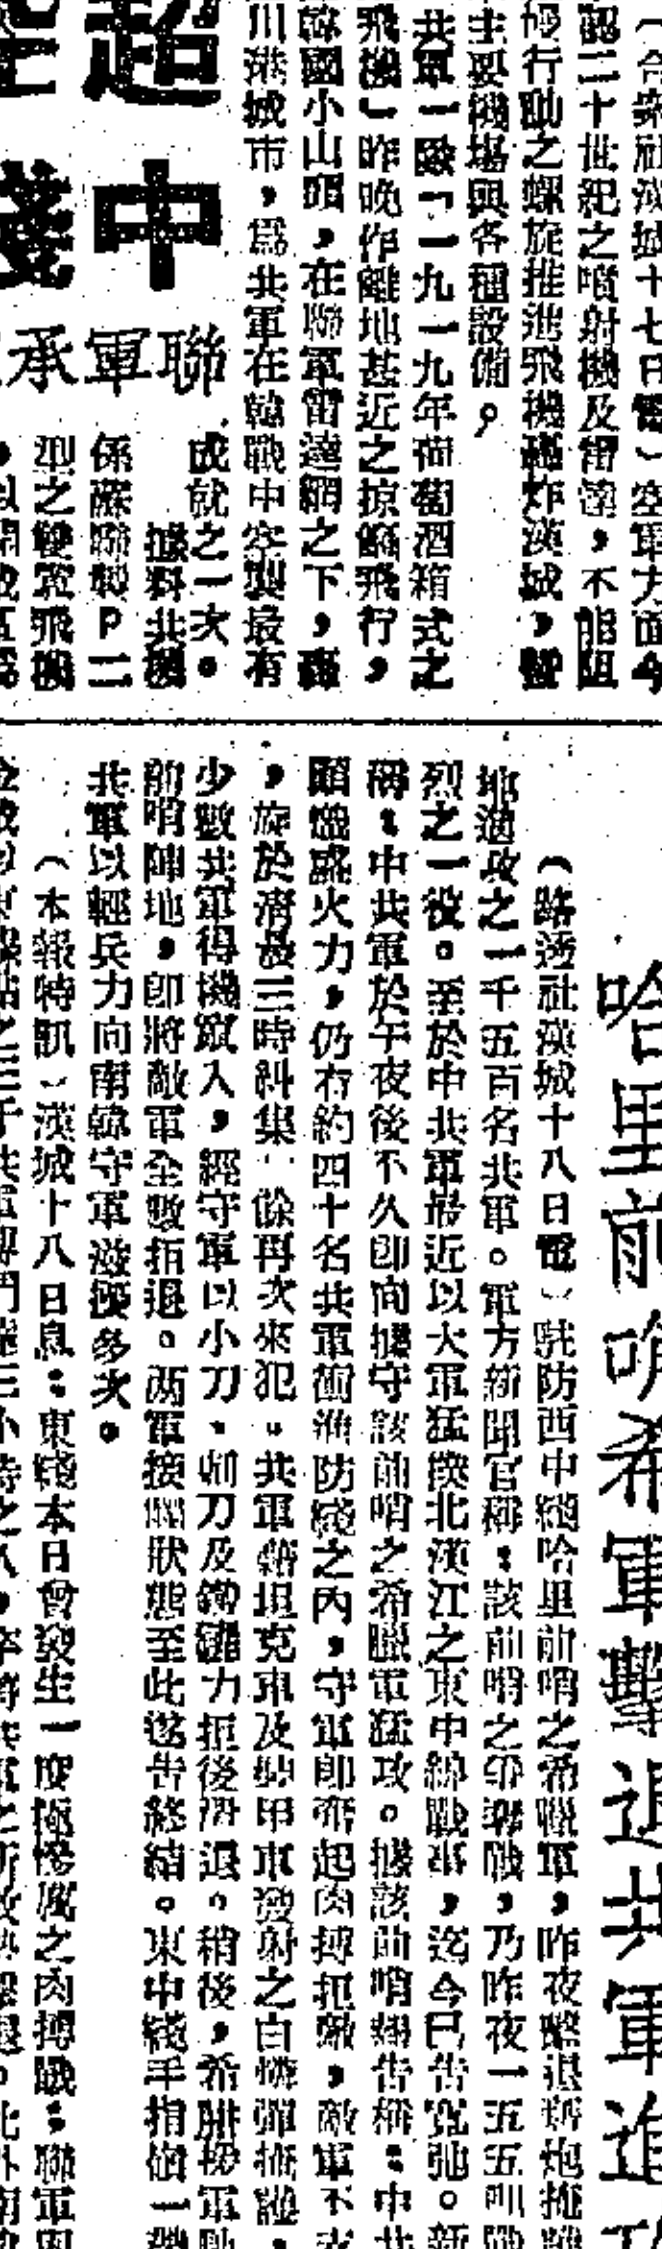 （合眾社漢城十七日電）空軍方面今
認二十世紀之噴射機及雷達，不能阻
行動之螺旋推進飛機轟炸漢城，暨
主要機場與各種設備。
共軍一隊「一九一九年葡萄酒箱式之
飛機」昨晚作離地甚近之掠飛行，
韓國小山頭，在聯軍雷達網之下，轟
川港城市，為共軍在韓戰中空襲最有
成就之一次。
據料共機
係蘇聯製P二
型之雙翼飛機
超
中
聯軍承
哈里前哨希軍擊退共軍進攻
（路透社漢城十八日電）駐防西中綫哈里前哨之希臘軍，昨夜擊退新炮掩護
地進攻之一千五百名共軍。軍方新聞官稱：該前哨之爭奪戰，乃昨夜一五五
烈之一役。至於中共軍最近以大軍猛撲北漢江之東中綫戰事，迄今已告寬弛。新
稱：中共軍於午夜後不久即向據守該前哨之希臘軍猛攻。據該前哨報告稱：中共
熾盛火力，仍有約四十名共軍衝進防綫之內，守軍即奮起肉搏拒敵，敵軍不支
，旋於清晨三時糾集餘再次來犯。共軍藉坦克車及裝甲車發射之白燐彈掩護，
少數共軍得機竄入，經守軍以小刀、刺刀及鋼力拒後潛退。稍後，希臘援軍
前哨陣地，即將敵軍全數拒退。兩軍接觸狀態至此遂告終結。東中綫手指嶺一
共軍以輕兵力向南韓守軍滋擾多次。
（本報特訊）漢城十八日息：東綫本日曾發生一度極慘厲之肉搏戰；聯軍